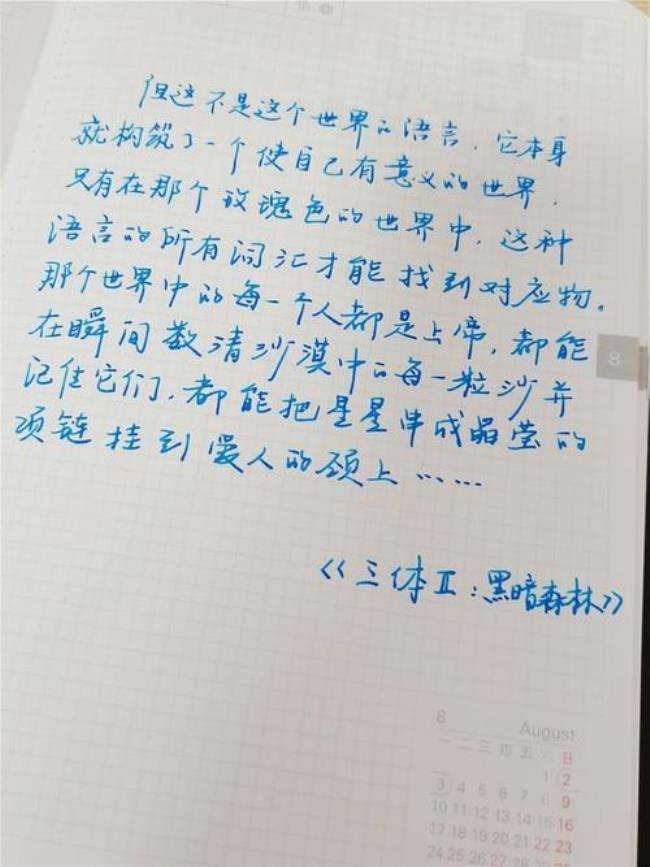 但这不是这个世界的语言，它本身
就构筑了一个使自己有意义的世界，
只有在那个玫瑰色的世界中，这种
语言的所有词汇才能找到对应物。
那个世界中的每一个人都是上帝，都能
在瞬间数清沙漠中的每一粒沙并
记住它们，都能把星星串成晶莹的
项链挂到爱人的颈上……
《三体Ⅱ：黑暗森林》
8
8 August
一 二 三 四 五 六 日
1 2
3 4 5 6 7 8 9
10 11 12 13 14 15 16
17 18 19 20 21 22 23
24 25 26 27 28